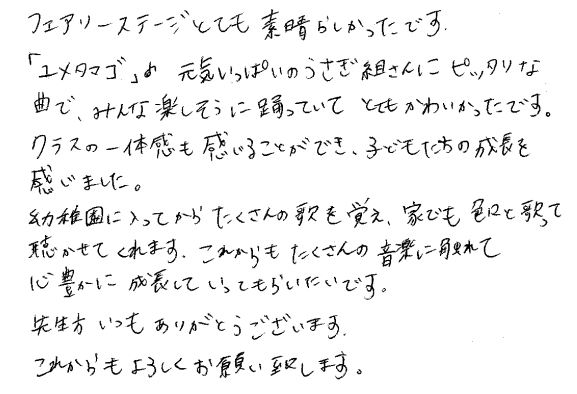 フェアリーステージとても素晴らしかったです.
「ユメタマゴ」は 元気いっぱいのうさぎ組さんに ピッタリな
曲で、みんな楽しそうに踊っていて とてもかわいかったです。
クラスの一体感も感じることができ、子どもたちの成長を
感じました。
幼稚園に入ってから たくさんの歌を覚え、家でも 色々と歌って
聴かせてくれます. これからも たくさんの音楽に触れて
心豊かに 成長して いってもらいたいです。
先生方 いつも ありがとうございます.
これからも よろしくお願い致します。